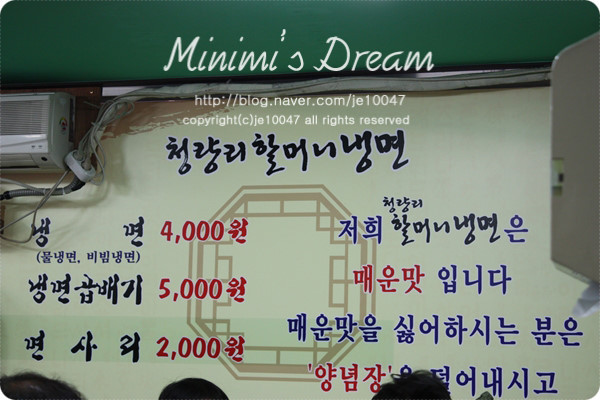 Minimi's Dream
http://blog.naver.com/je10047
copyright(c)je10047 all rights reserved
청량리할머니냉면
냉 면 4,000원
(물냉면, 비빔냉면)
냉면곱배기 5,000원
면 사 리 2,000원
청량리
저희 할머니냉면은
매운맛 입니다
매운맛을 싫어하시는 분은
'양념장'을 덜어내시고